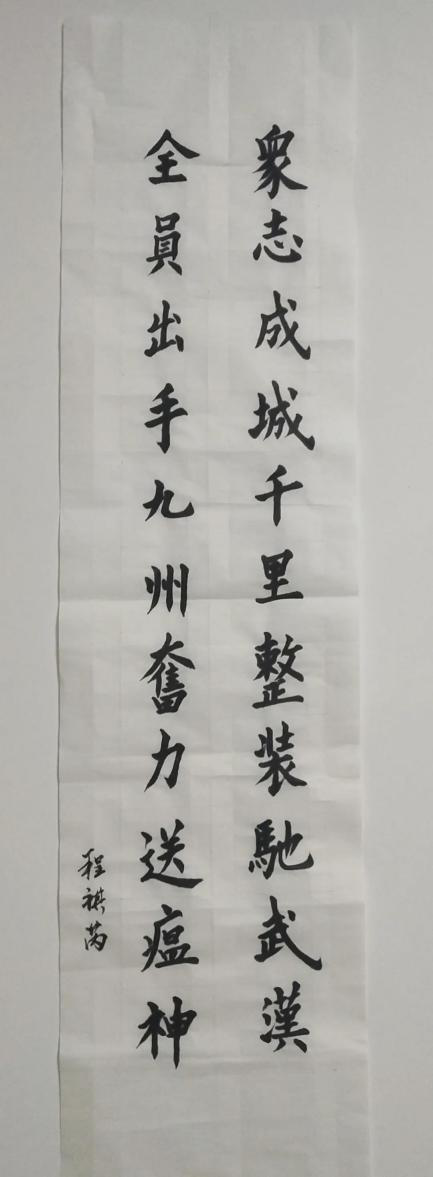 衆志成城千里整装馳武漢
全員出手九州奮力送瘟神
程祺芮